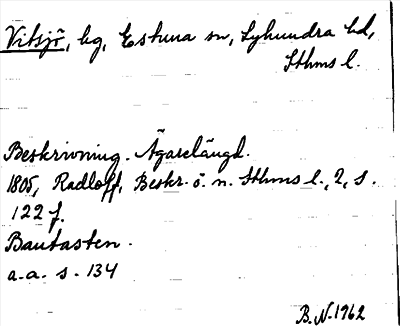 Vitsjö, bg, Estuna sn, Lyhundra hd,
Sthms l.
Beskrivning. Ägarelängd.
1805, Radloff, Beskr. ö. n. Sthms l., 2, s.
122 f.
Bautasten.
a.a. s. 134
B.N. 1962